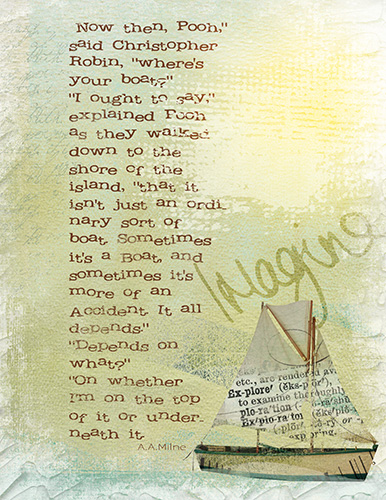 Now then, Pooh,"
said Christopher
Robin, "where's
your boat?"
"I ought to say,"
explained Pooh
as they walked
down to the
shore of the
island, "that it
isn't just an ordi
nary sort of
boat. Sometimes
it's a Boat, and
sometimes it's
more of an
Accident. It all
depends."
"Depends on
what?"
"On whether
I'm on the top
of it or under-
neath it.
A.A.Milne
Imagine
etc., are rendered av.
Ex-plore' (ĕks-plōr'),
to examine thoroughly
plo-ra'tion (
Ex'plo-ra'tion (ĕks'plō-
(-plōr'
exploring.